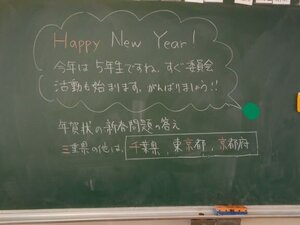 Happy New Year!
今年は5年生ですね。すぐ委員会
活動も始まります。がんばりましょう!!
年賀状の新春問題の答え
三重県の他は、千葉県、東京都、京都府